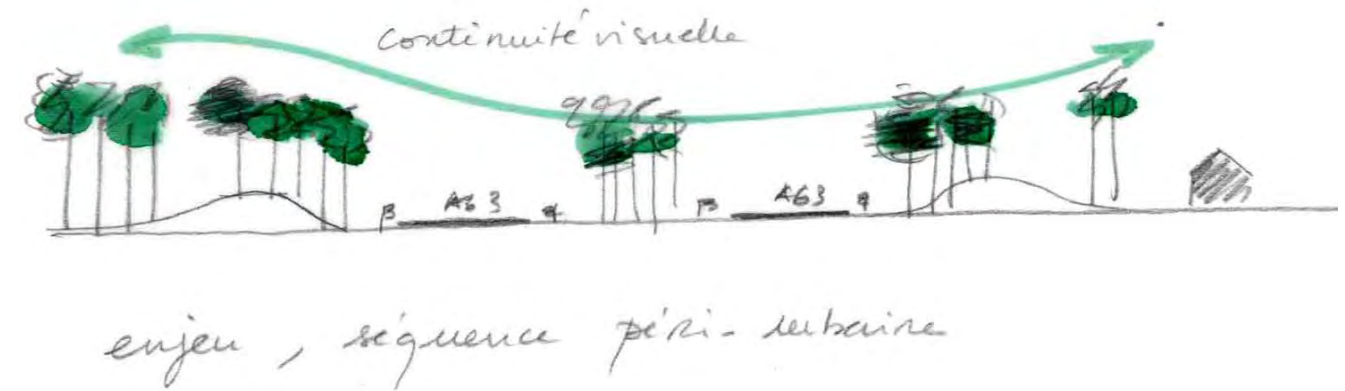 continuité visuelle
A63 A63
enjeu, séquence péri-urbaine